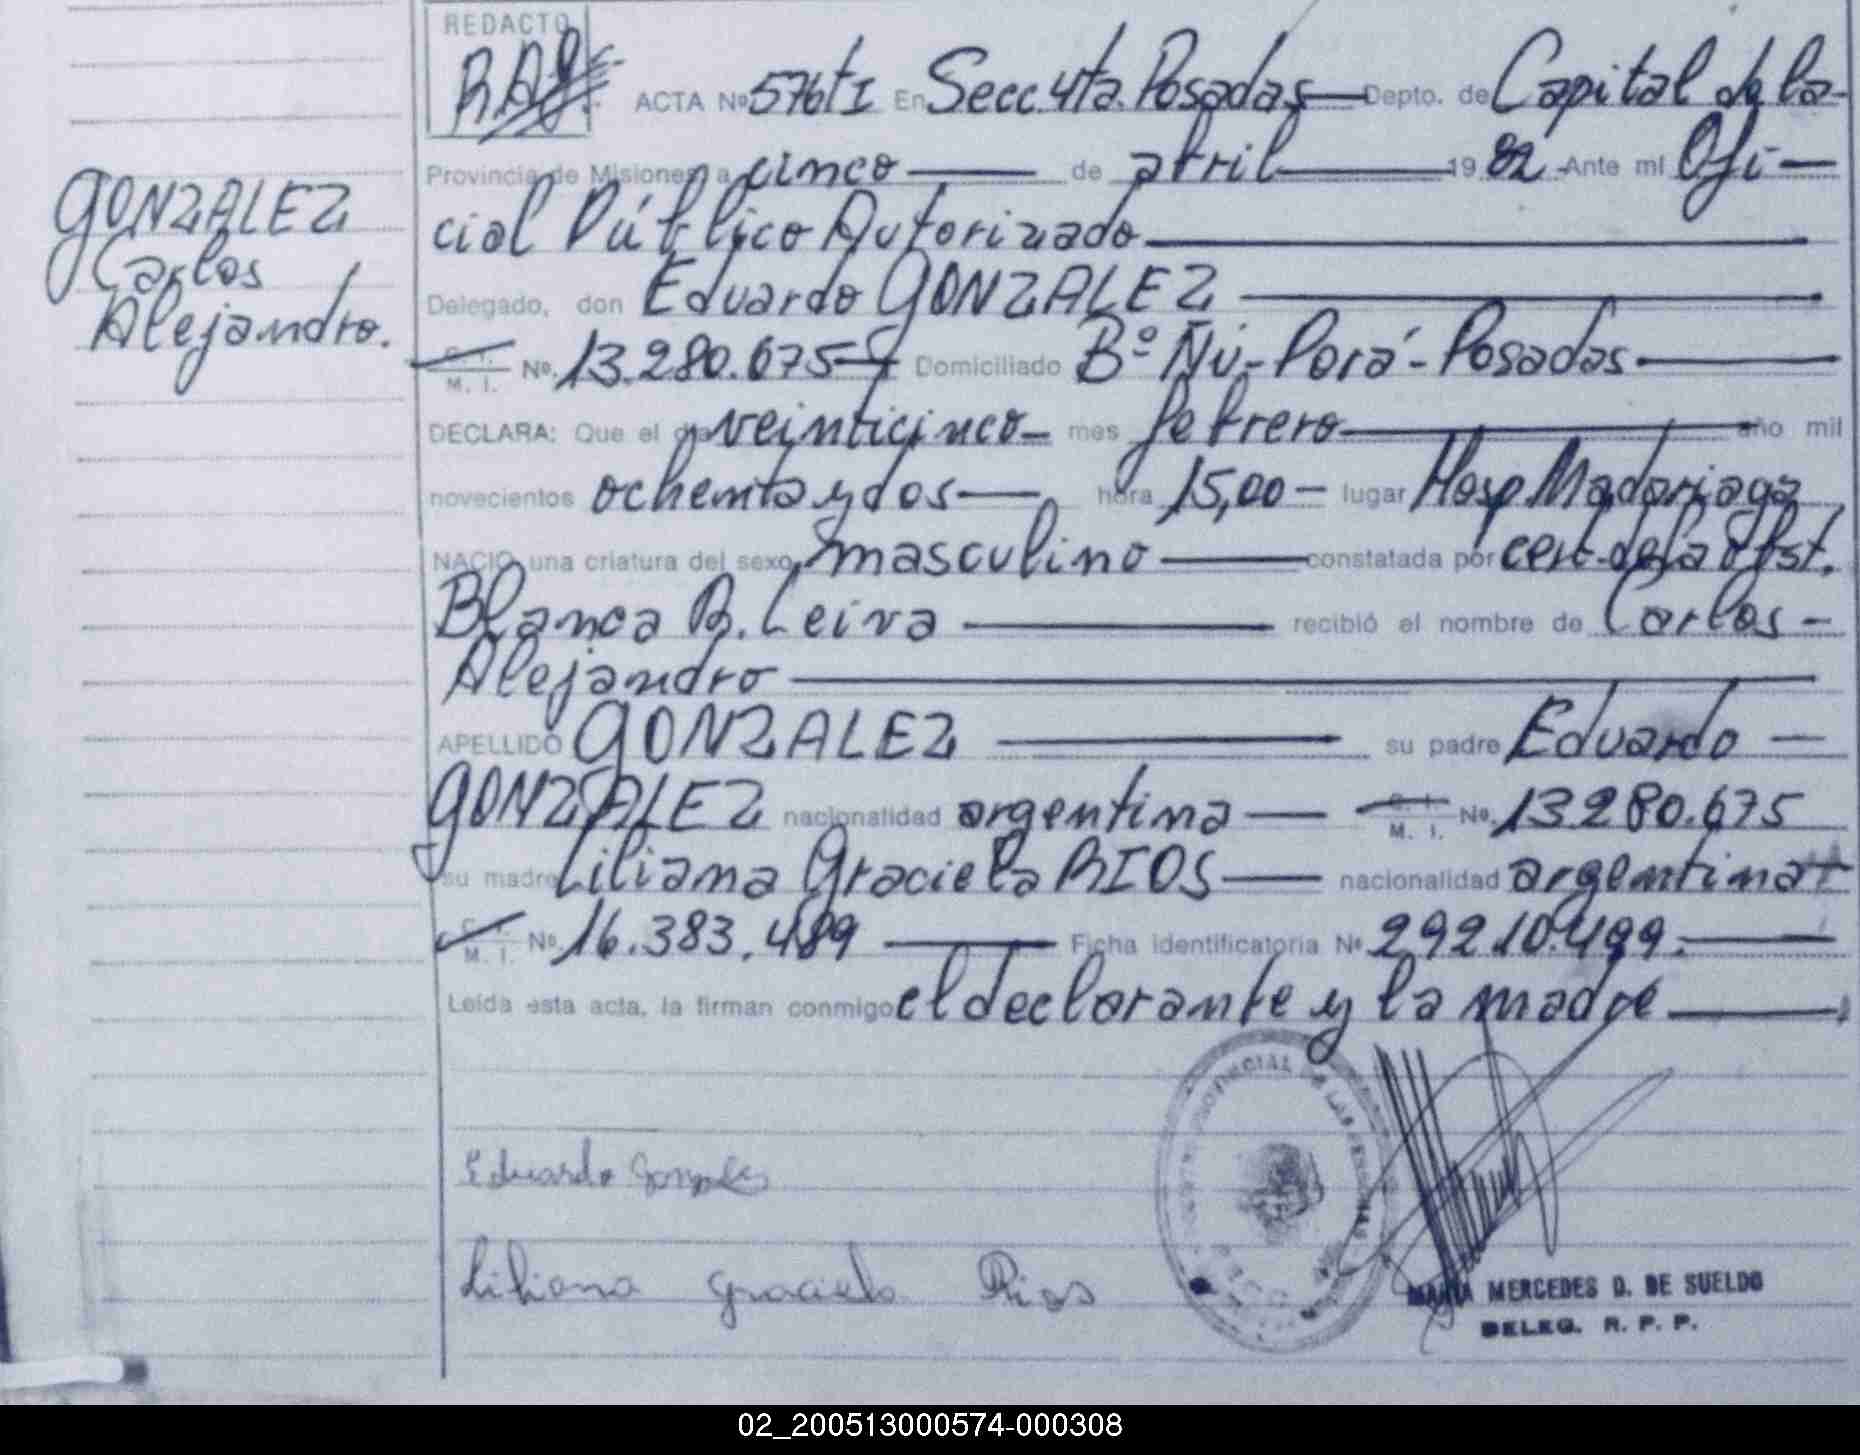 REDACTO
ACTA Nº 576 tI En Secc. 4ta. Posadas Depto. de Capital de la
Provincia de Misiones a cinco de abril 19 82 Ante mí Ofi-
GONZALEZ
Carlos
Alejandro.
cial Público Autorizado
Delegado, don Eduardo GONZALEZ
C. I. M. I. Nº 13.280.675 Domiciliado Bº Ñú-Porá-Posadas
DECLARA: Que el día veinticinco mes febrero año mil
novecientos ochenta y dos hora 15,00 lugar Hosp Madariaga
NACIO una criatura del sexo masculino constatada por cert. de la Obst.
Blanca R. Leiva recibió el nombre de Carlos
Alejandro
APELLIDO GONZALEZ su padre Eduardo
GONZALEZ nacionalidad argentina C. I. M. I. Nº 13.280.675
su madre Liliana Graciela RIOS nacionalidad argentina
C. I. M. I. Nº 16.383.489 Ficha identificatoria Nº 29210.499.
Leída esta acta, la firman conmigo el declarante y la madre
PROVINCIAL DE LAS PERSONAS
Eduardo Gonzalez
Liliana Graciela Rios
MARIA MERCEDES D. DE SUELDO
DELEG. R. P. P.
02_200513000574-000308